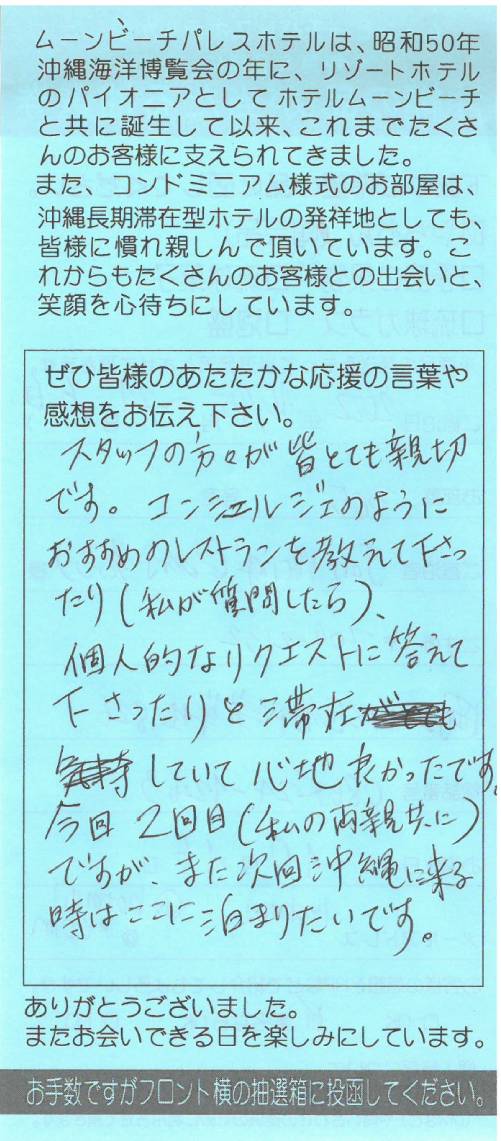 ムーンビーチパレスホテルは、昭和50年
沖縄海洋博覧会の年に、リゾートホテル
のパイオニアとしてホテルムーンビーチ
と共に誕生して以来、これまでたくさ
んのお客様に支えられてきました。
また、コンドミニアム様式のお部屋は、
沖縄長期滞在型ホテルの発祥地としても、
皆様に慣れ親しんで頂いています。こ
れからもたくさんのお客様との出会いと、
笑顔を心待ちにしています。
ぜひ皆様のあたたかな応援の言葉や
感想をお伝え下さい。
スタッフの方々が皆とても親切
です。コンシェルジェのように
おすすめのレストランを教えて下さっ
たり(私が質問したら)、
個人的なリクエストに答えて
下さったりと滞在
していて心地良かったです。
今回2回目(私の両親共に)
ですが、また次回沖縄に来る
時はここに泊まりたいです。
ありがとうございました。
またお会いできる日を楽しみにしています。
お手数ですがフロント横の抽選箱に投函してください。